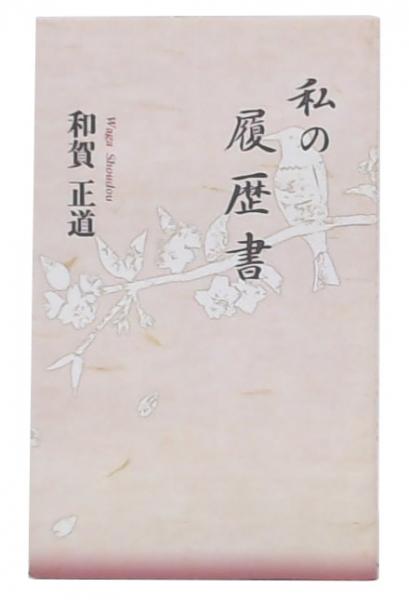 私の
履歴書
和賀 正道
Waga Shoudou